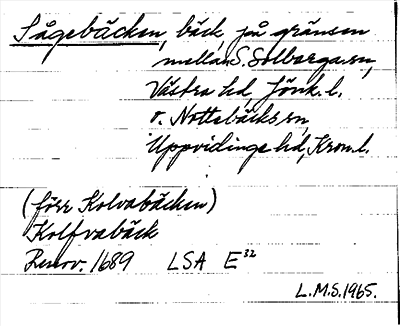 Sågebäcken, bäck, på gränsen
mellan S. Solberga sn,
Västra hd, Jönk. l.
o. Nottebäcks sn,
Uppvidinge hd, Kron. l.
(förr Kolvabäcken)
Kolfvabäck
Renov. 1689 LSA E³²
L.M.S. 1965.